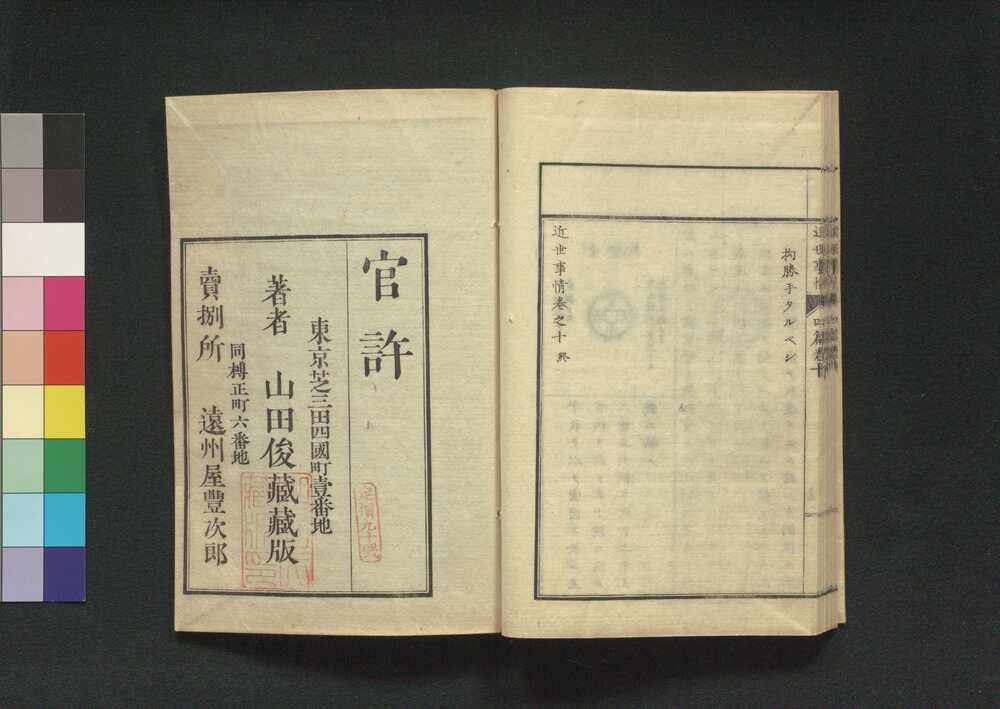 拘勝手タルベシ
近世事情巻之十 終
近世事情 四篇巻十
官許
東京芝三田四國町壹番地
著者 山田俊藏藏版
同榑正町六番地
賣捌所 遠州屋豐次郎
定價九十錢